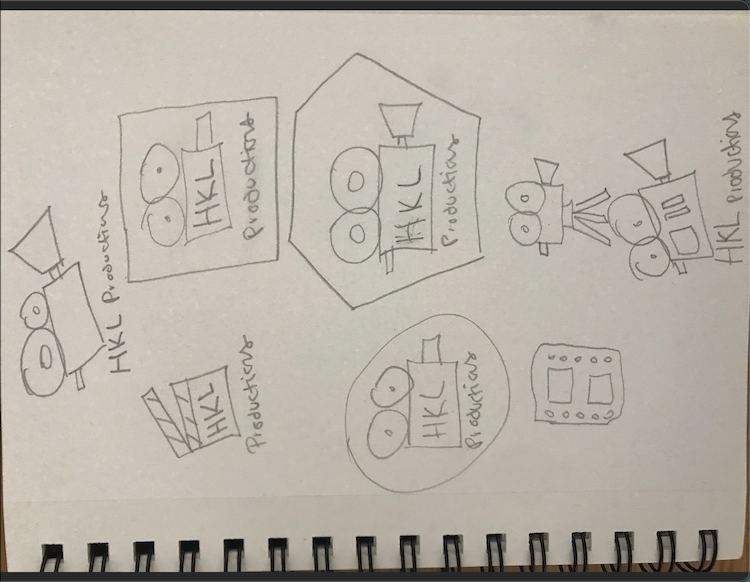 HKL Productions
HKL
Productions
HKL
Productions
HKL
Productions
HKL
Productions
HKL Productions